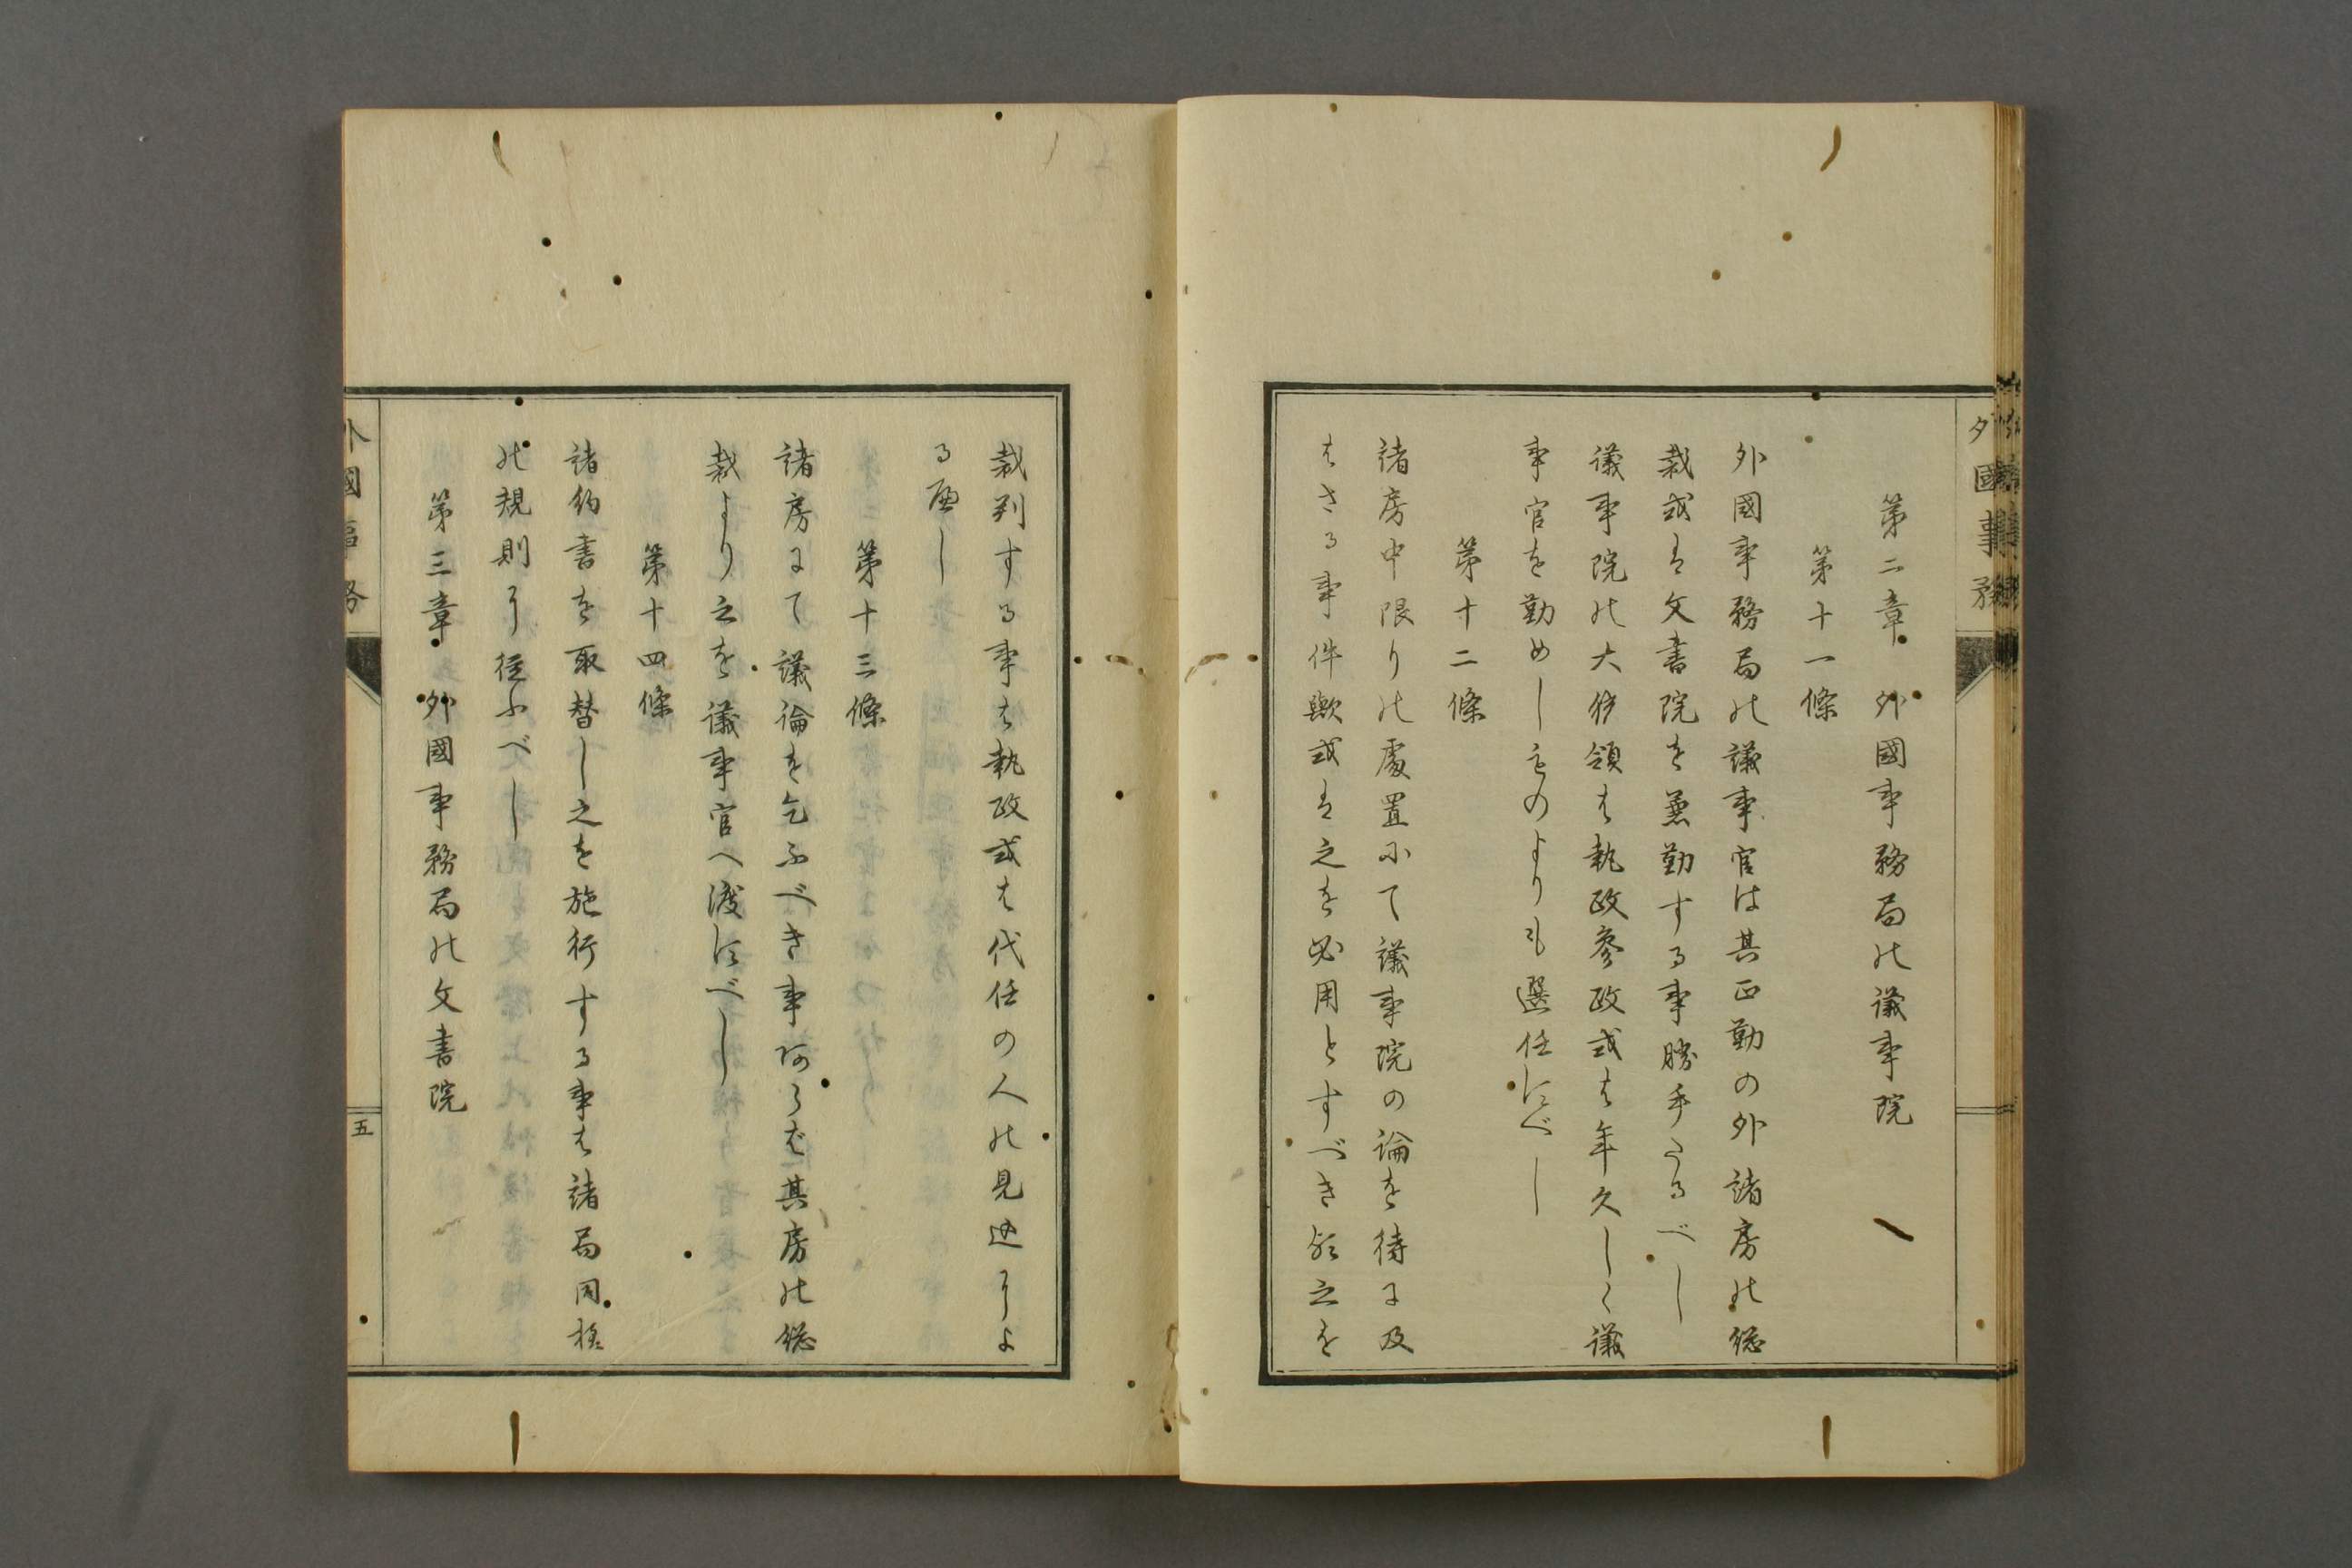 第二章　外國事務局の議事院
第十一條
外國事務局の議事官は其正勤の外諸房の総
裁或は文書院を兼勤する事勝手たるべし
議事院の大頭領は執政参政或は年久しく議
事官を勤めしものよりも選任すべし
第十二條
諸房中限りの處置にて議事院の論を待に及
はさる事件歟或は之を必用とすべき歟之を
裁判する事は執政或は代任の人の見込によ
る歟し
第十三條
諸房にて議論を乞ふべき事あらば其房の総
裁より之を議事官へ渡すべし
第十四條
諸約書を取替し之を施行する事は諸局同様
の規則に従ふべし
第三章　外國事務局の文書院
外國事務
五